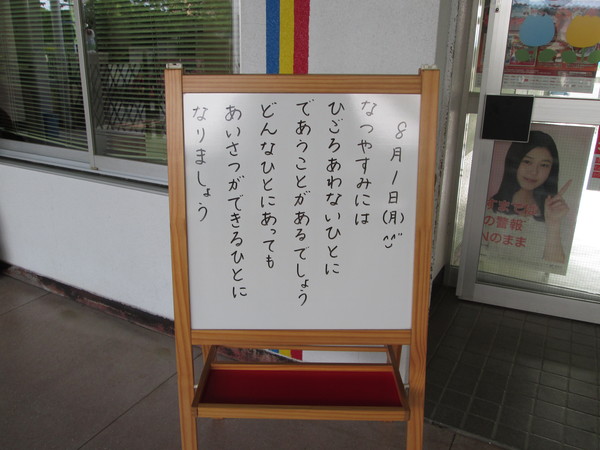 8月1日(月)
なつやすみには
ひごろあわないひとに
であうことがあるでしょう
どんなひとにあっても
あいさつができるひとに
なりましょう
の警報
Nのまま